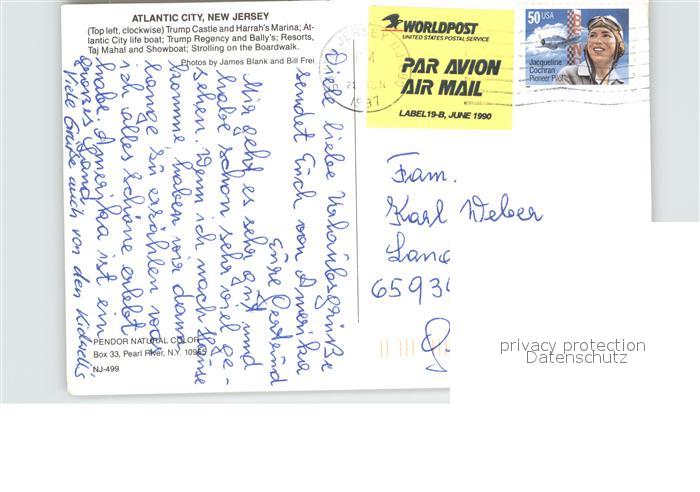 ATLANTIC CITY, NEW JERSEY
(Top left, clockwise) Trump Castle and Harrah's Marina; At-
lantic City life boat; Trump Regency and Bally's; Resorts,
Taj Mahal and Showboat; Strolling on the Boardwalk.
Photos by James Blank and Bill Frei
WORLDPOST
UNITED STATES POSTAL SERVICE
PAR AVION
AIR MAIL
LABEL 19-B, JUNE 1990
50 USA
Jacqueline
Cochran
Pioneer Pilot
JERSEY
PM
JUN
1997
Diese liebe Urlaubsgrüße
sendet Euch von Amerika
Eure Gertrud
Mir geht es sehr gut und
habe schon sehr viel ge-
sehen. Wenn ich nach Hause
komme, haben wir dann
lange zu erzählen was
ich alles schöne erlebt
habe. Amerika ist ein
grosses Land.
Viele Grüße auch von den
Fam.
Karl Weber
Land
6593
PENDOR NATURAL COLOR
Box 33, Pearl River, N.Y. 10965
NJ-499
privacy protection
Datenschutz